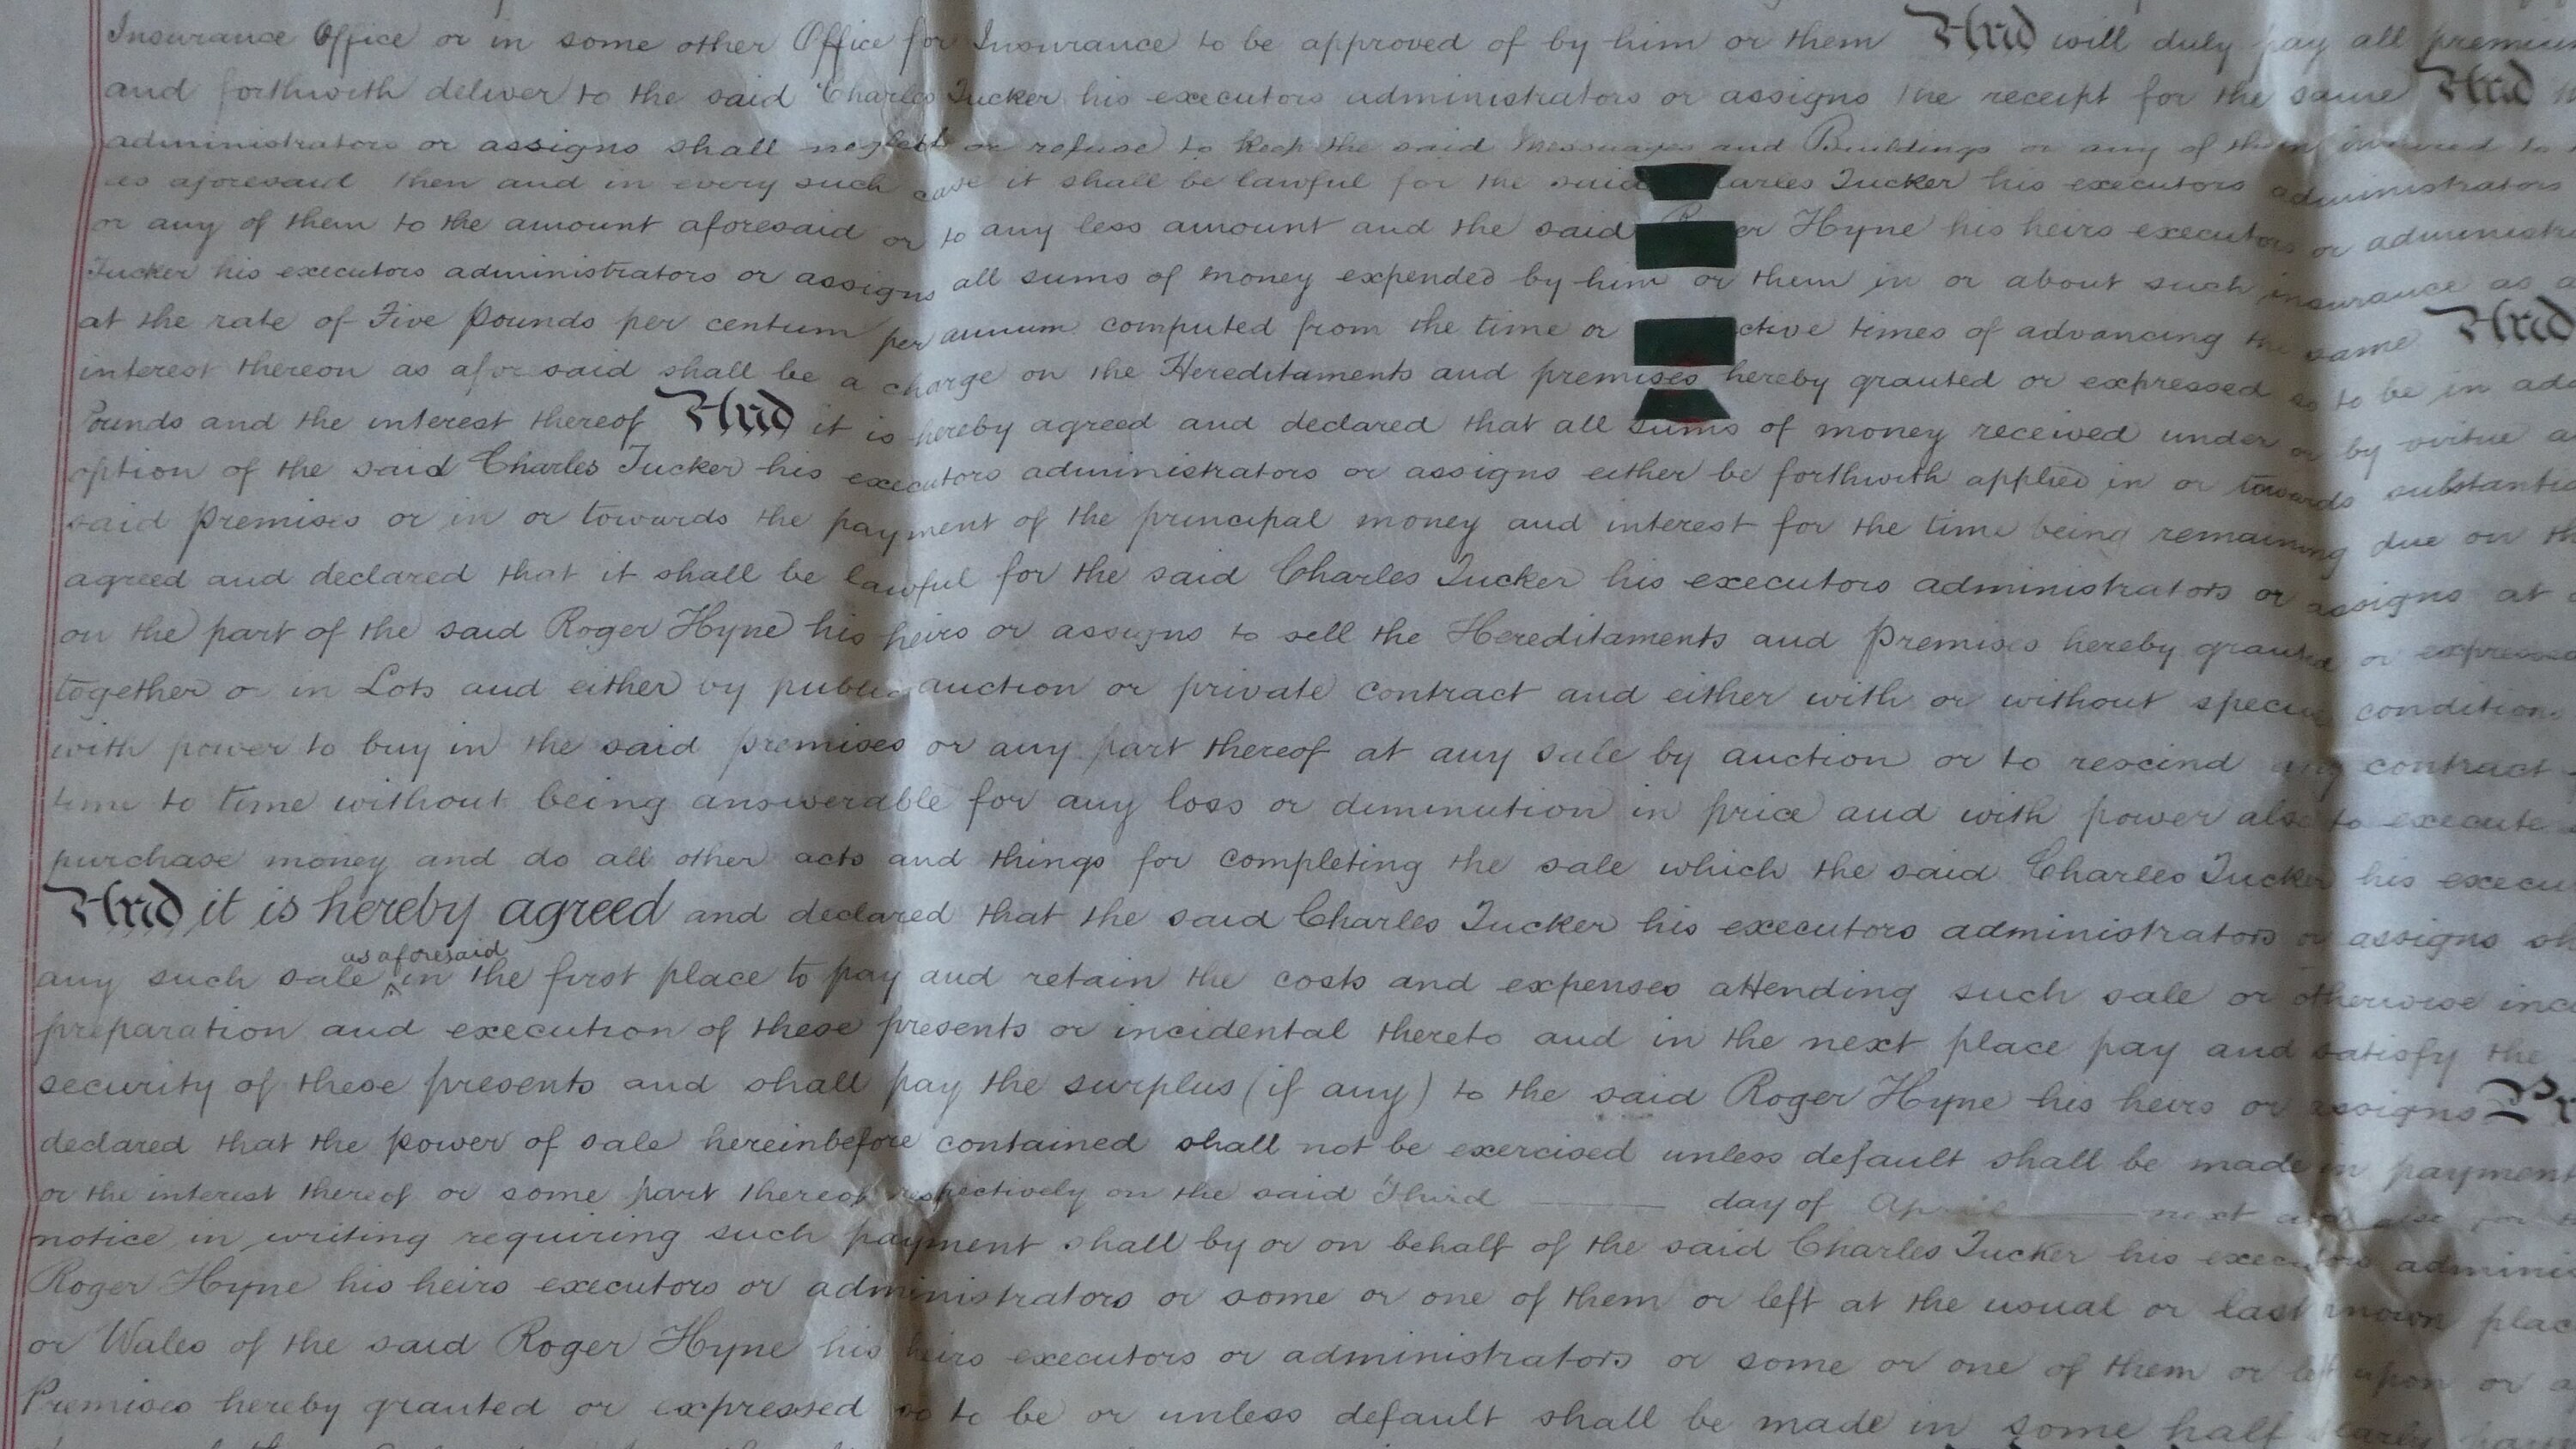 Insurance Office or in some other Office for Insurance to be approved of by him or them And will duly pay all
and forthwith deliver to the said Charles Tucker his executors administrators or assigns the receipt for the same And
administrators or assigns shall neglect or refuse to keep the said Messuages and Buildings or any of them insured to
as aforesaid then and in every such case it shall be lawful for the said Charles Tucker his executors administrators
or any of them to the amount aforesaid or to any less amount and the said Roger Hyne his heirs executors or
Tucker his executors administrators or assigns all sums of money expended by him or them in or about such insurance as
at the rate of Five pounds per centum per annum computed from the time or times of advancing the same And
interest thereon as aforesaid shall be a charge on the Hereditaments and premises hereby granted or expressed so to be in
Pounds and the interest thereof And it is hereby agreed and declared that all sums of money received under or by virtue
option of the said Charles Tucker his executors administrators or assigns either be forthwith applied in or towards
said premises or in or towards the payment of the principal money and interest for the time being remaining due on
agreed and declared that it shall be lawful for the said Charles Tucker his executors administrators or assigns at
on the part of the said Roger Hyne his heirs or assigns to sell the Hereditaments and Premises hereby granted or
together or in Lots and either by public auction or private contract and either with or without special
with power to buy in the said premises or any part thereof at any sale by auction or to rescind any contract
time to time without being answerable for any loss or diminution in price and with power also to execute
purchase money and do all other acts and things for completing the sale which the said Charles Tucker his
And it is hereby agreed and declared that the said Charles Tucker his executors administrators or assigns
as aforesaid
any such sale in the first place to pay and retain the costs and expenses attending such sale or otherwise
preparation and execution of these presents or incidental thereto and in the next place pay and satisfy the
security of these presents and shall pay the surplus (if any) to the said Roger Hyne his heirs or assigns
declared that the power of sale hereinbefore contained shall not be exercised unless default shall be made in payment
or the interest thereof or some part thereof respectively on the said Third day of April next and also for
notice in writing requiring such payment shall by or on behalf of the said Charles Tucker his executors
Roger Hyne his heirs executors or administrators or some or one of them or left at the usual or last known
or Wales of the said Roger Hyne his heirs executors or administrators or some or one of them or left upon or
Premises hereby granted or expressed so to be or unless default shall be made in some half yearly